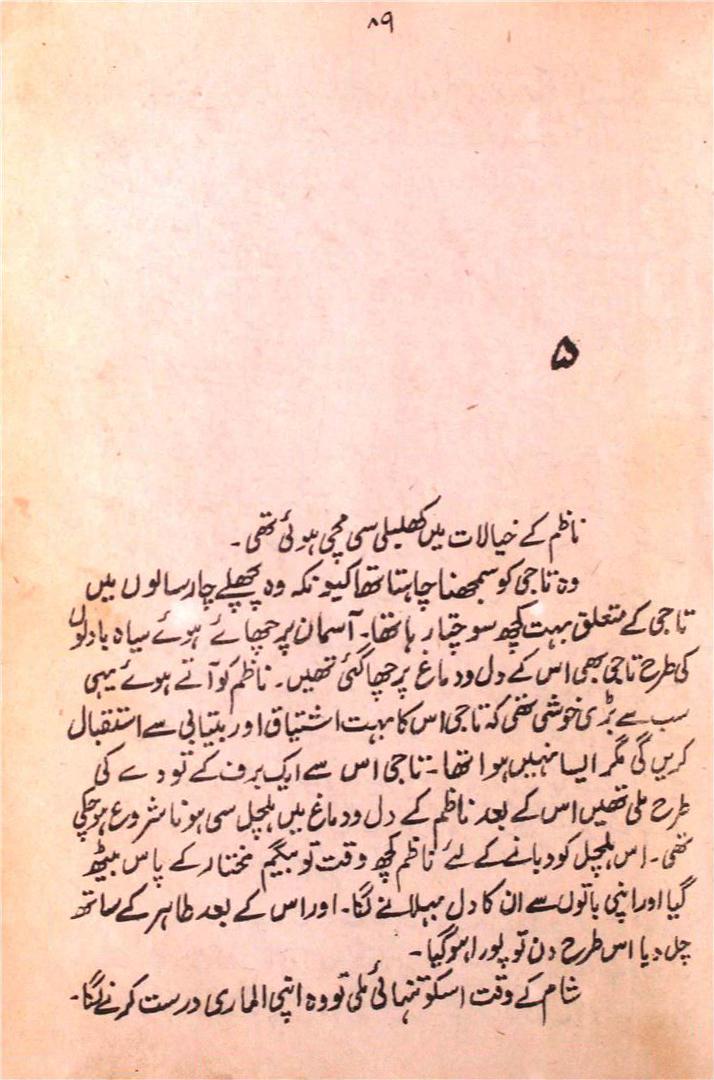 ۸۹
۵
ناظم کے خیالات میں کھلبلی سی مچی ہوئی تھی۔
وہ تاجی کو سمجھنا چاہتا تھا کیونکہ وہ پچھلے چار سالوں میں
تاجی کے متعلق بہت کچھ سوچتا رہا تھا۔ آسمان پر چھائے ہوئے سیاہ بادلوں
کی طرح تاجی بھی اس کے دل و دماغ پر چھا گئی تھیں۔ ناظم کو آتے ہوئے یہی
سب سے بڑی خوشی تھی کہ تاجی اس کا بہت اشتیاق اور بیتابی سے استقبال
کریں گی مگر ایسا نہیں ہوا تھا۔ تاجی اس سے ایک برف کے تودے کی
طرح ملی تھیں اس کے بعد ناظم کے دل و دماغ میں ہلچل سی ہونا شروع ہو چکی
تھی۔ اس ہلچل کو دبانے کے لئے ناظم کچھ وقت تو بیگم مختار کے پاس بیٹھ
گیا اور اپنی باتوں سے ان کا دل بہلانے لگا۔ اور اس کے بعد طاہر کے ساتھ
چل دیا اس طرح دن تو پورا ہو گیا۔
شام کے وقت اسکو تنہائی ملی تو وہ اپنی الماری درست کرنے لگا۔